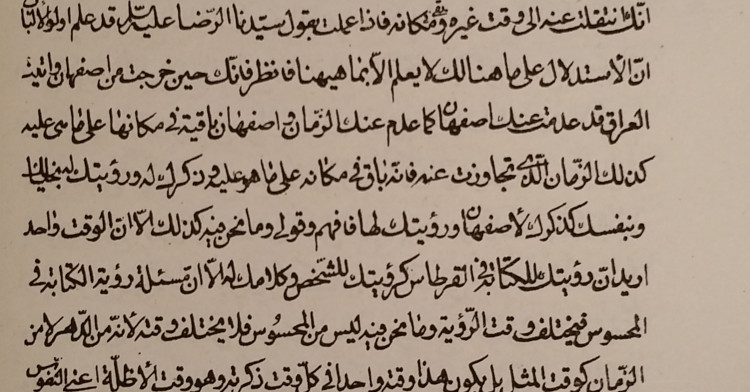 انك انتقلت عنه الى وقت غيره ومكانه فاذا عملت بقول سيدنا الرضا عليه السلام قد علم اولوا الالباب
ان الاستدلال على ما هنالك لا يعلم الا بما هيهنا فانظر فانك حين خرجت من اصفهان واتيت
العراق قد عدمت عنك اصفهان كما عدم عنك الزمان واصفهان باقية في مكانها على ما هى عليه
كذلك الزمان الذى تجاوزت عنه فانه باق في مكانه على ما هو عليه وذكرك له ورؤيتك له بخيالك
وبنفسك كذكرك لاصفهان ورؤيتك لها فافهم وقولى وما نحن فيه كذلك الا ان الوقت واحد
اريد ان رؤيتك للكتابة في القرطاس كرؤيتك للشخص وكلامك له الا ان مسئلة رؤية الكتابة في
المحسوس فيختلف وقت الرؤية وما نحن فيه ليس من المحسوس فلا يختلف وقته لانه من الدهر لا من
الزمان كوقت المثل بل يكون هذا وقته واحدا في كل وقت ذكرته وهو وقت الاظلة اعنى النفوس